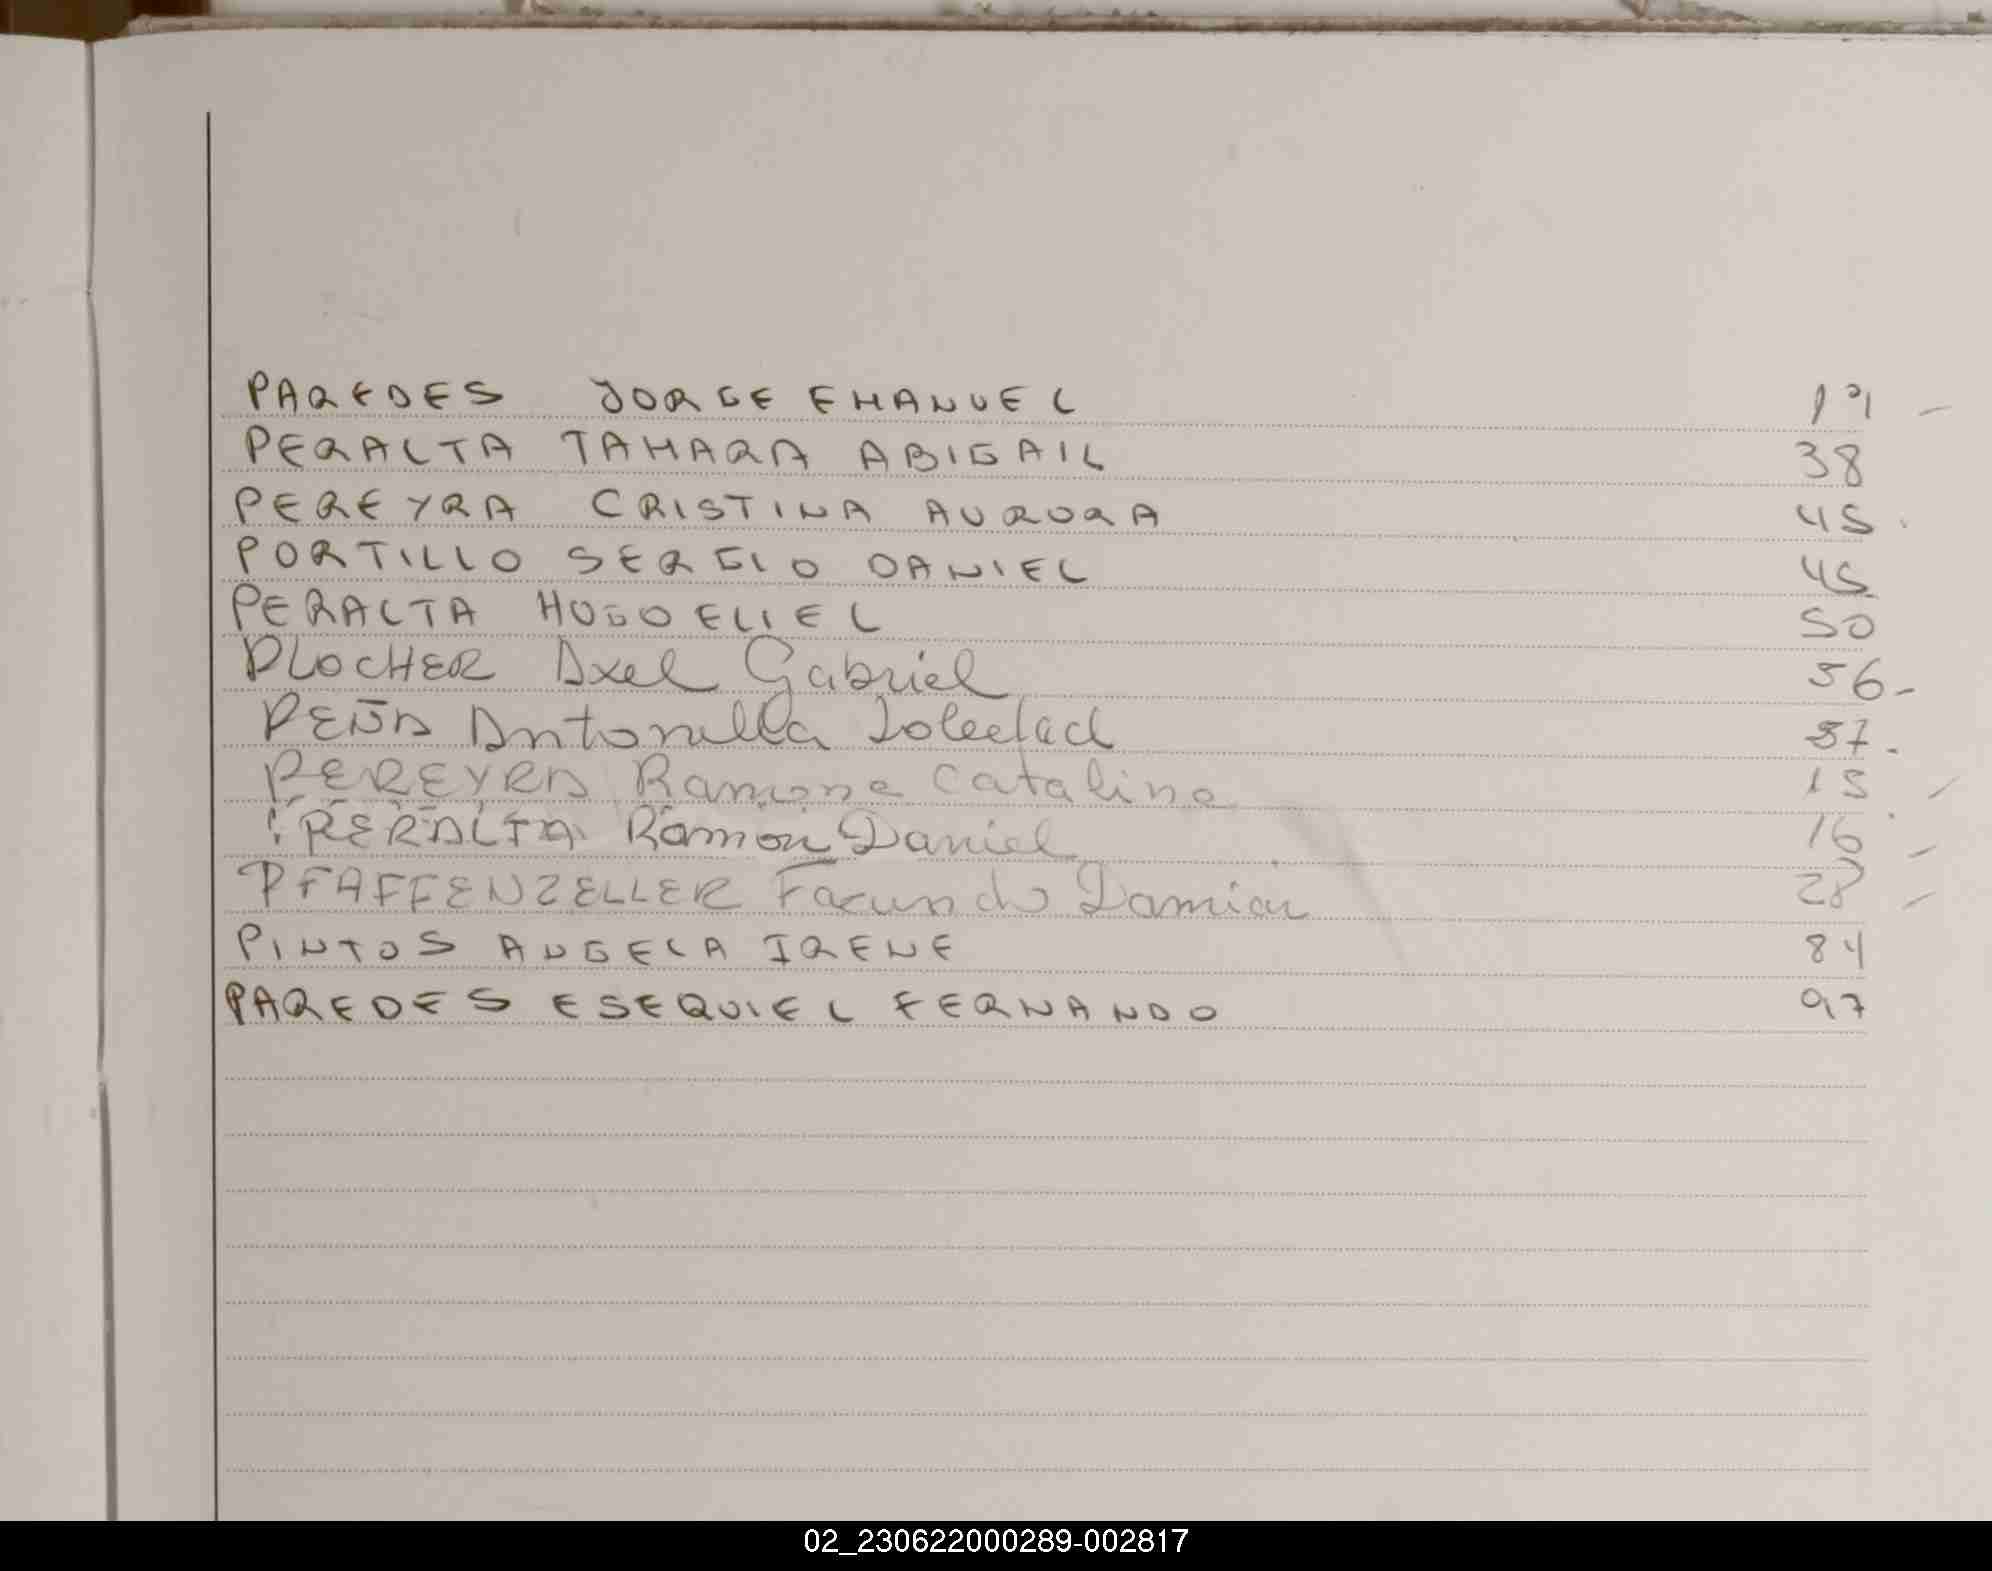 PAREDES JORGE EMANUEL 19 -
PERALTA TAMARA ABIGAIL 38
PEREYRA CRISTINA AURORA 45
PORTILLO SERGIO DANIEL 45
PERALTA HUGO ELIEL 50
PLOCHER Axel Gabriel 56-
PEÑA Antonella Soledad 57.
PEREYRA Ramona Catalina 15 -
PERALTA Ramón Daniel 16 -
PFAFFENZELLER Facundo Damian 28 -
PINTOS ANGELA IRENE 84
PAREDES ESEQUIEL FERNANDO 97
02_230622000289-002817